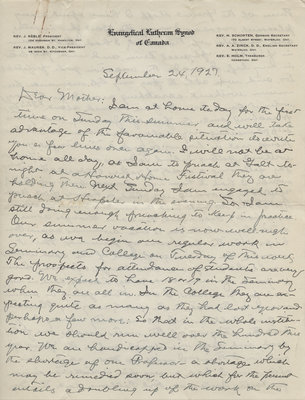 Evangelical Lutheran Synod
of Canada.
REV. J. REBLE, PRESIDENT
REV. J. MAURER, D. D., VICE-PRESIDENT
REV. H. SCHORTEN, GERMAN SECRETARY
REV. A. A. ZINCK, D. D., ENGLISH SECRETARY
REV. E. HOLM, TREASURER
September 24, 1927.
Dear Mother:
I am at home today for the first
time on Sunday this summer and will take
advantage of the favourable situation to write
you a few lines once again. I will not be at
home all day, as I am to preach at Galt to-
night at a Harvest Home Festival they are
holding there. Next Sunday I am engaged to
preach at in the evening. So I am
still doing enough preaching to keep in practice.
Our summer vacation is now well nigh
over, as we begin our regular work in
Seminary and College on Tuesday of this week.
The prospects for attendance of students are very
good. We expect to have 18 or 19 in the Seminary
when they are all in. In the College they are ex-
pecting quite as many as they had last year and
perhaps a few more. So that in the whole institu-
tion we should run well over the hundred this
year. We are handicapped in the Seminary by
the shortage of one Professor a shortage which
may be remedied soon but which for the present
entails a doubling up of the work on the